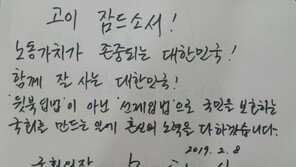 고이 잠드소서!
노동가치가 존중되는 대한민국!
함께 잘 사는 대한민국!
'뒷북입법'이 아닌 '선제입법'으로 국민을 보호하는
국회를 만드는 일에 혼신의 노력을 다 하겠습니다.
2019. 2. 8
국회의장